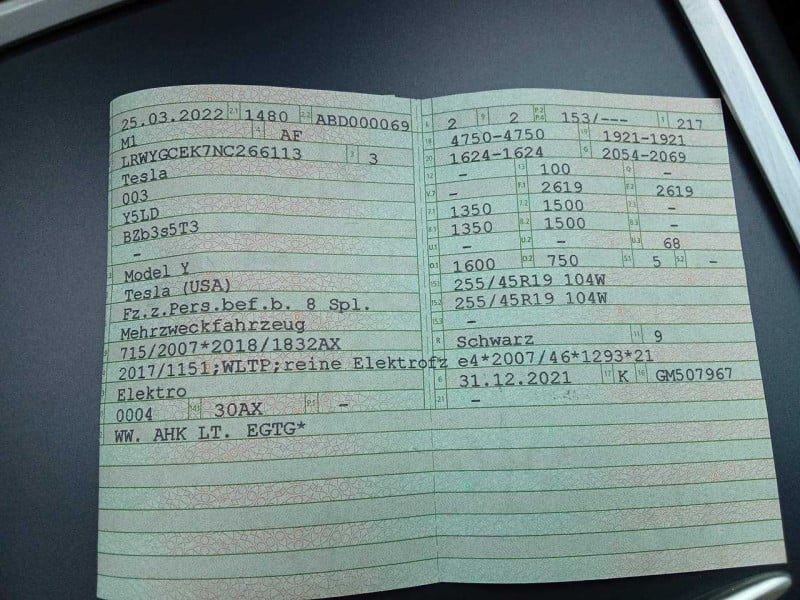 25.03.2022 2.1 1480 2.2 ABD000069
M1 AF
LRWYGCEK7NC266113 3 3
Tesla
003
Y5LD
BZb3s5T3
-
Model Y
Tesla (USA)
Fz.z.Pers.bef.b. 8 Spl.
Mehrzweckfahrzeug
715/2007*2018/1832AX
2017/1151;WLTP;reine Elektrofz
Elektro
0004 30AX -
WW. AHK LT. EGTG*
L 2 9 2 P.2 P.4 153/--- T 217
18 4750-4750 19 1921-1921
20 1624-1624 G 2054-2069
12 - 13 100 Q -
V.7 - F.1 2619 F.2 2619
7.1 1350 7.2 1500 7.3 -
8.1 1350 8.2 1500 8.3 -
U.1 - U.2 - U.3 68
O.1 1600 O.2 750 S.1 5 S.2 -
15.1 255/45R19 104W
15.2 255/45R19 104W
15.3 -
R Schwarz 11 9
e4*2007/46*1293*21
6 31.12.2021 17 K 16 GM507967
21 -